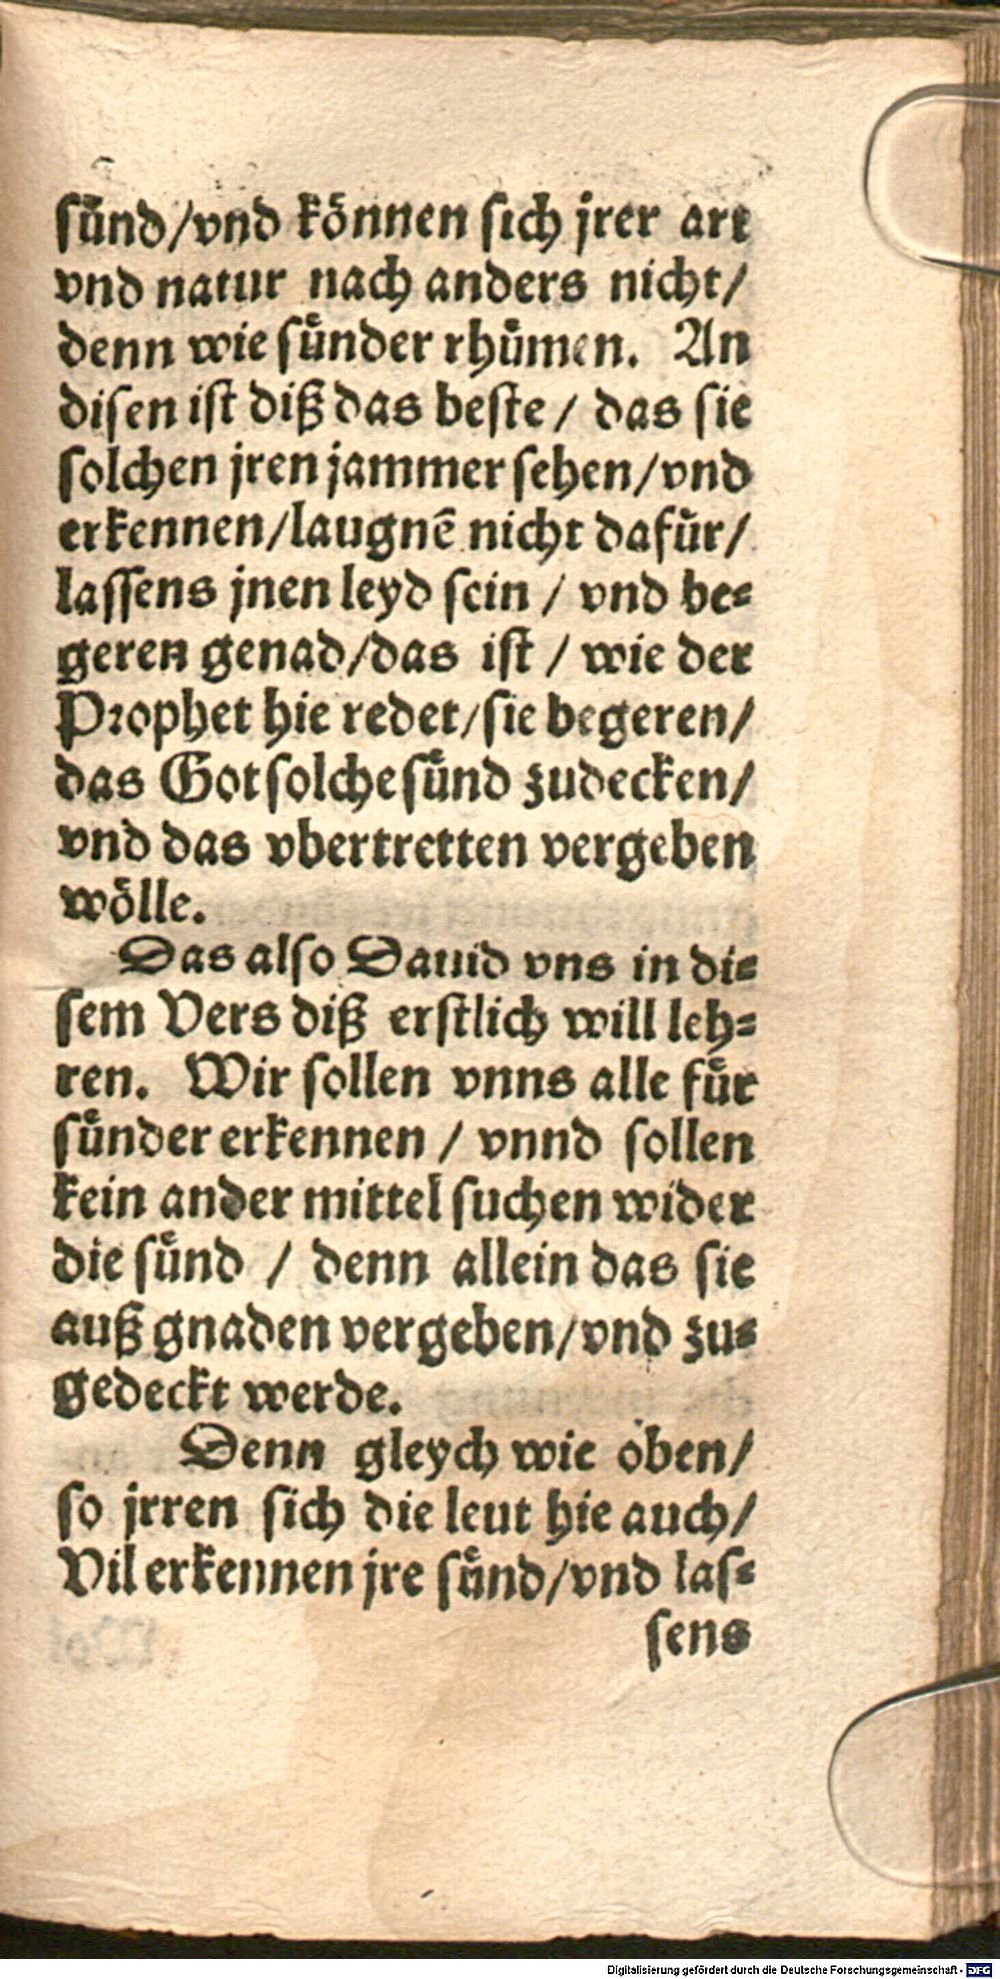 sünd/vnd können sich jrer art
vnd natur nach anders nicht/
denn wie sünder rhümen. An
disen ist diß das beste / das sie
solchen jren jammer sehen/vnd
erkennen/laugnē nicht dafür/
lassens jnen leyd sein / vnd be⸗
geren genad/das ist / wie der
Prophet hie redet/sie begeren/
das Got solche sünd zudecken/
vnd das vbertretten vergeben
wölle.
Das also Dauid vns in di⸗
sem Vers diß erstlich will leh⸗
ren. Wir sollen vnns alle für
sünder erkennen / vnnd sollen
kein ander mittel suchen wider
die sünd / denn allein das sie
auß gnaden vergeben/vnd zu⸗
gedeckt werde.
Denn gleych wie oben/
so jrren sich die leut hie auch/
Vil erkennen jre sünd/vnd las⸗
sens
Digitalisierung gefördert durch die Deutsche Forschungsgemeinschaft - DFG